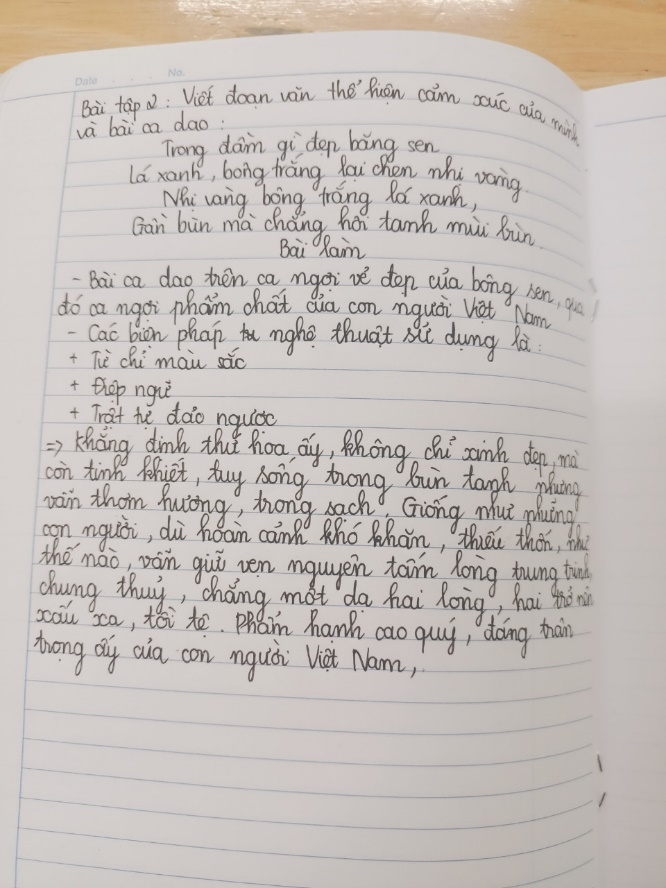 Date No.
Bài tập 2: Viết đoạn văn thể hiện cảm xúc của mình
và bài ca dao:
Trong đầm gì đẹp bằng sen
Lá xanh, bông trắng lại chen nhị vàng.
Nhị vàng bông trắng lá xanh,
Gần bùn mà chẳng hôi tanh mùi bùn.
Bài làm
- Bài ca dao trên ca ngợi vẻ đẹp của bông sen, qua
đó ca ngợi phẩm chất của con người Việt Nam
- Các biện pháp tu nghệ thuật sử dụng là:
+ Từ chỉ màu sắc
+ Điệp ngữ
+ Trật tự đảo ngược
=> Khẳng định thứ hoa ấy, không chỉ xinh đẹp, mà
còn tinh khiết, tuy sống trong bùn tanh nhưng
vẫn thơm hương, trong sạch. Giống như những
con người, dù hoàn cảnh khó khăn, thiếu thốn, như
thế nào, vẫn giữ vẹn nguyên tấm lòng trung trinh
chung thuỷ, chẳng một dạ hai lòng, hai trở nên
xấu xa, tồi tệ. Phẩm hạnh cao quý, đáng trân
trọng ấy của con người Việt Nam,